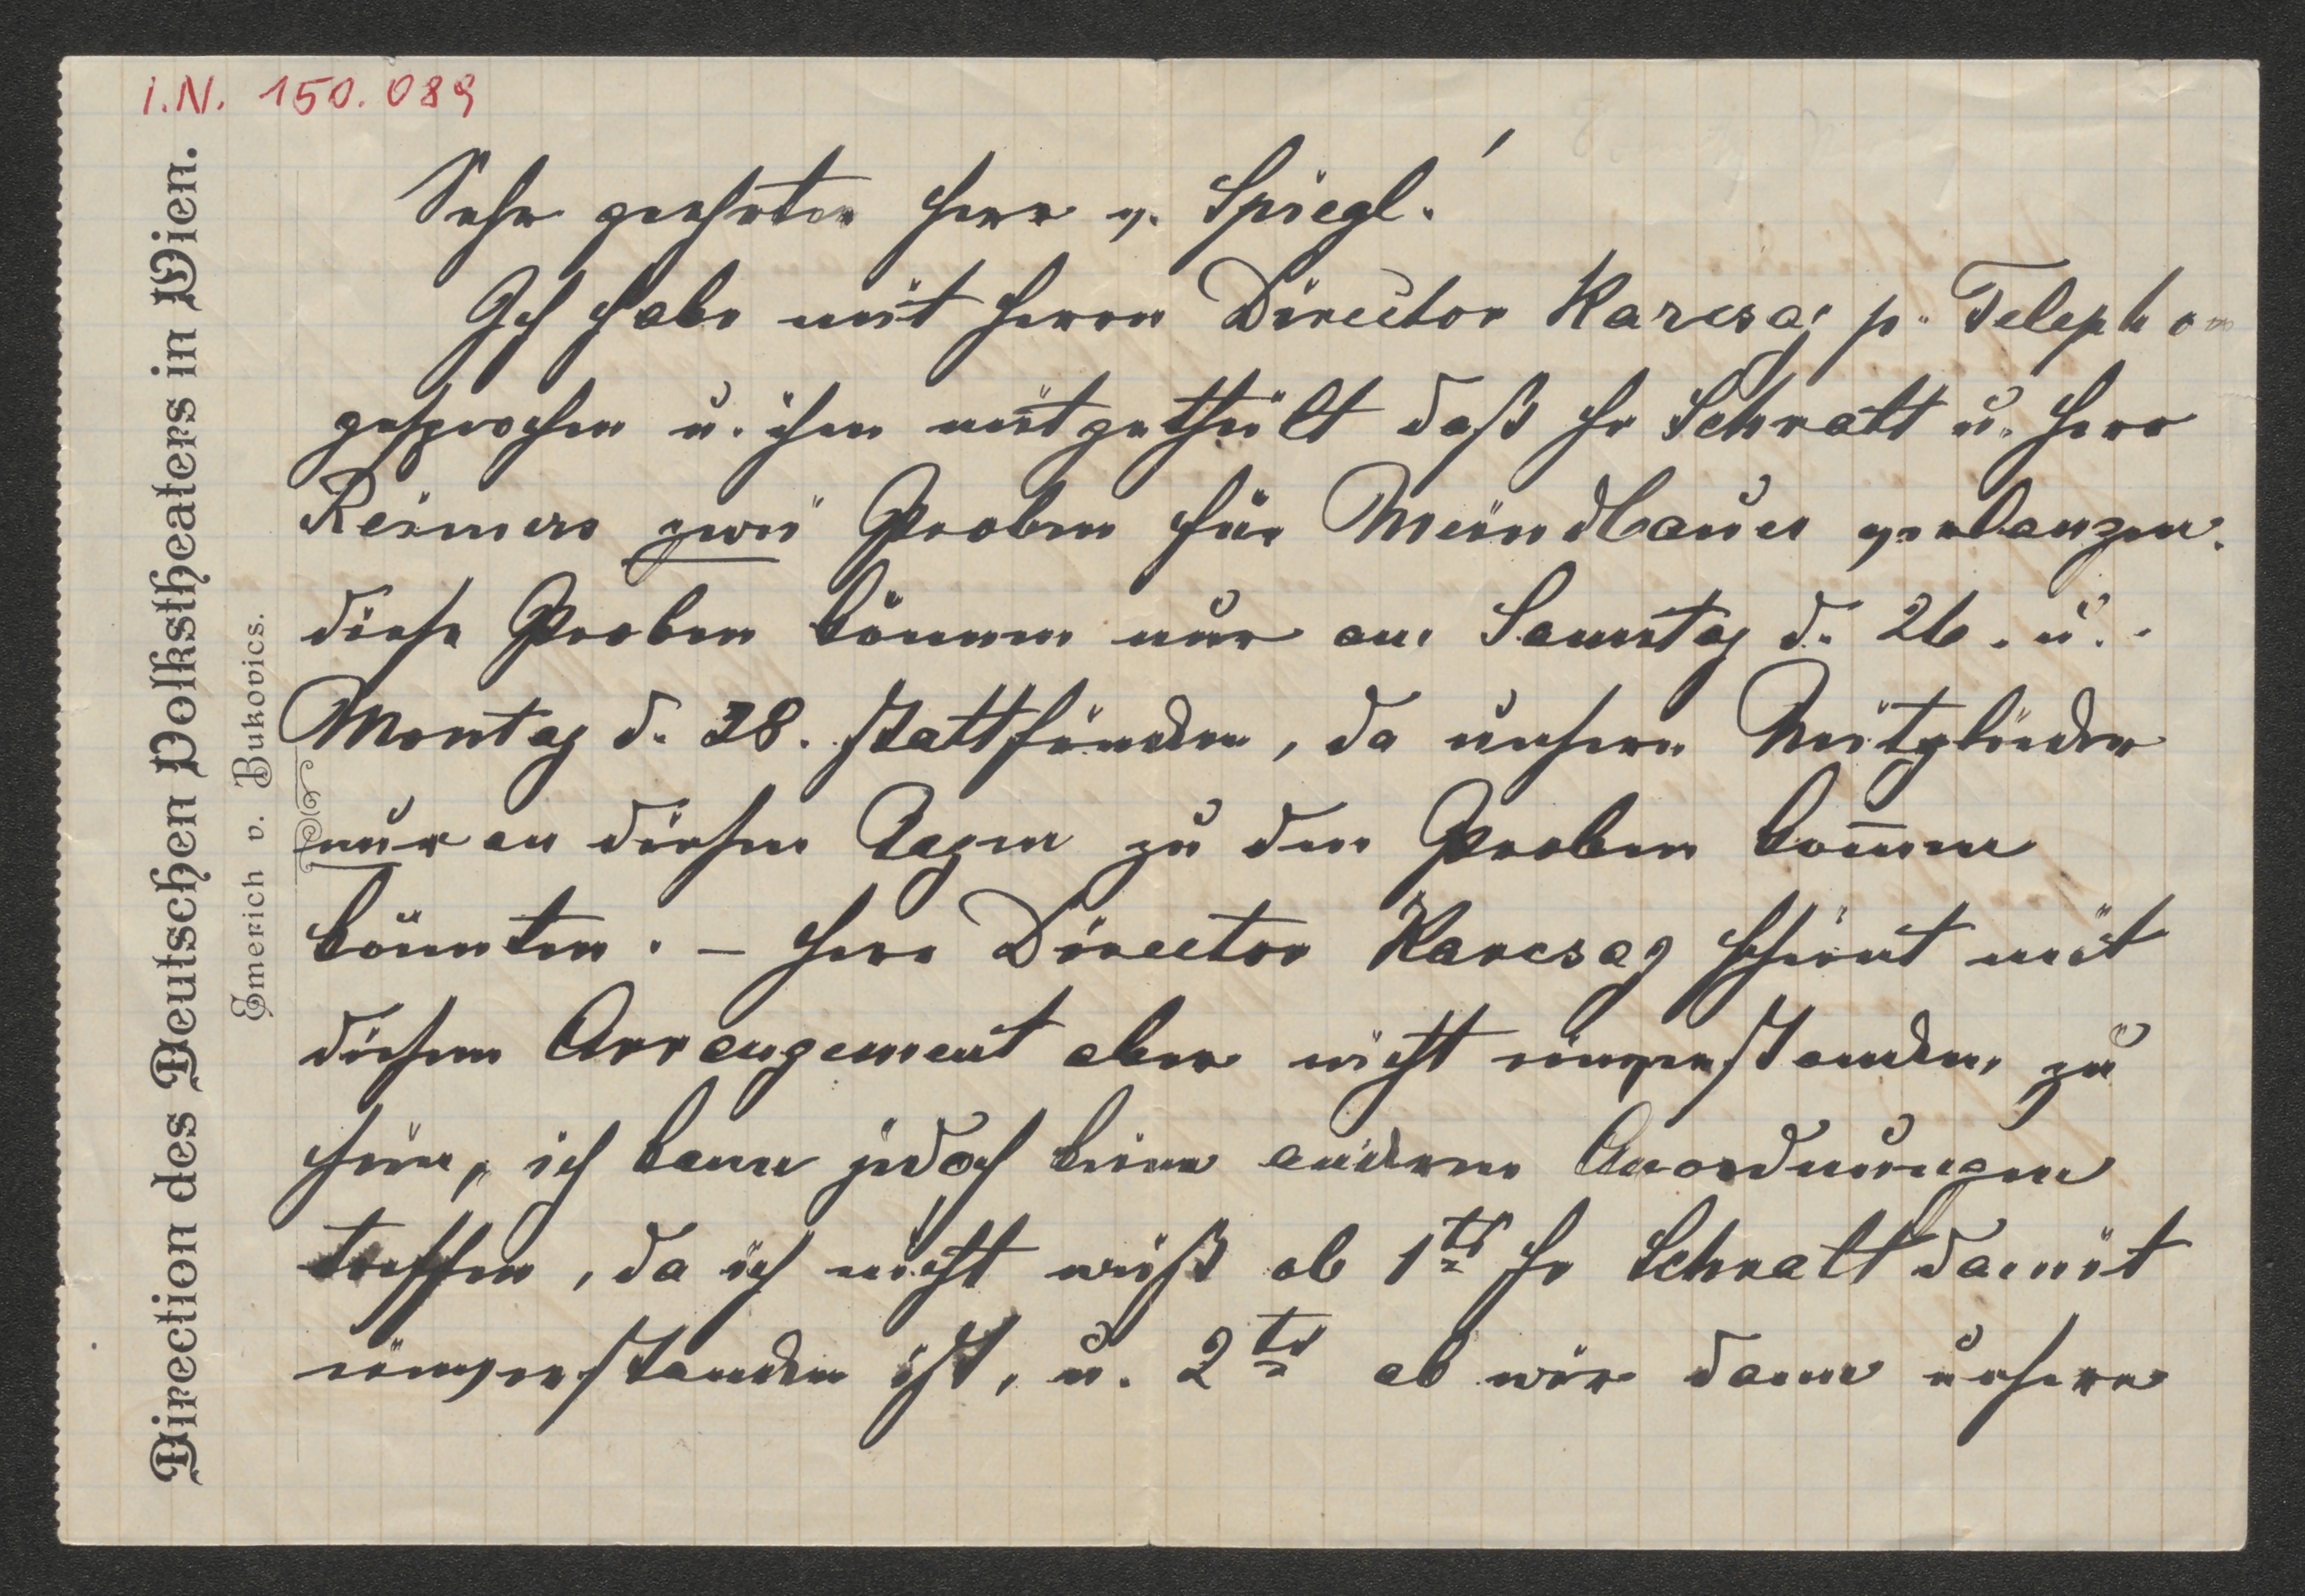 I.N. 150.089
Direction des Deutschen Volkstheaters in Wien.
Emerich v. Bukovics.
Sehr geehrter Herr v. Spiegl!
Ich habe mit Herrn Director Karcsag p. Telephon
gesprochen u. ihm mitgetheilt daß Fr Schratt u. Herr
Reimers zwei Proben für Meindlbauer verlangen.
diese Proben können nur am Samstag d. 26. u.
Montag d. 28. stattfinden, da unsere Mitglieder
nur an diesen Tagen zu den Proben kom̅en
könnten. – Herr Director Karcsag scheint mit
diesem Arrangement aber nicht einverstanden zu
sein, ich kann jedoch keine anderen Anordnungen
treffen, da ich nicht weiß ob 1tes Fr Schratt damit
einverstanden ist, u. 2tes ob wir dann unsere